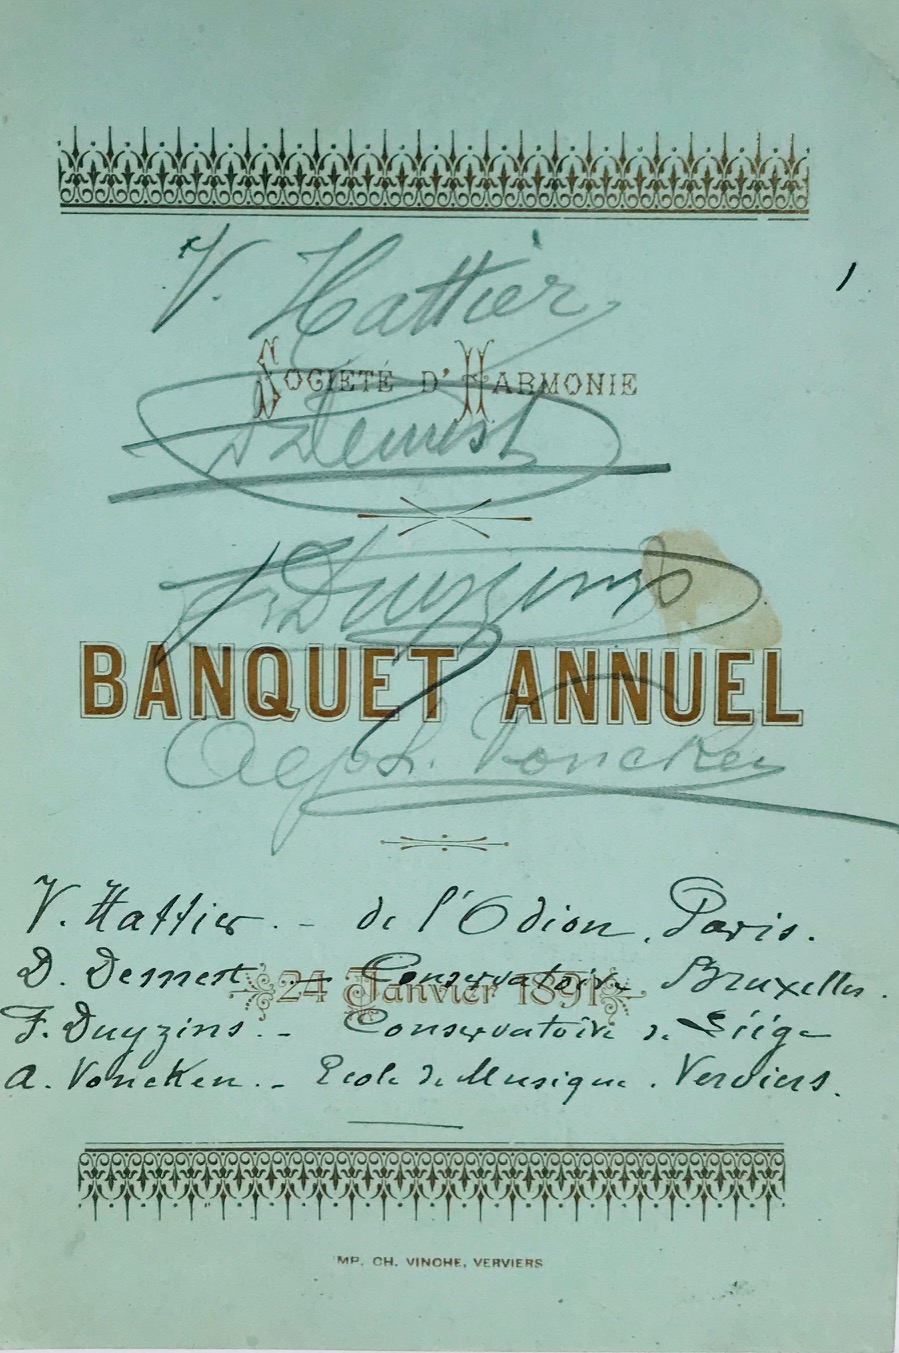 V. Hattier
SOCIÉTÉ D'HARMONIE
D Demest
F. Duyzings
BANQUET ANNUEL
Alph. Voncken
V. Hattier. - de l'Odion, Paris.
D. Demest - Conservatoire Bruxelles.
24 Janvier 1891
F. Duyzins. - Conservatoire de Liége
A. Voncken. - Ecole de Musique. Verviers.
IMP. CH. VINCHE, VERVIERS